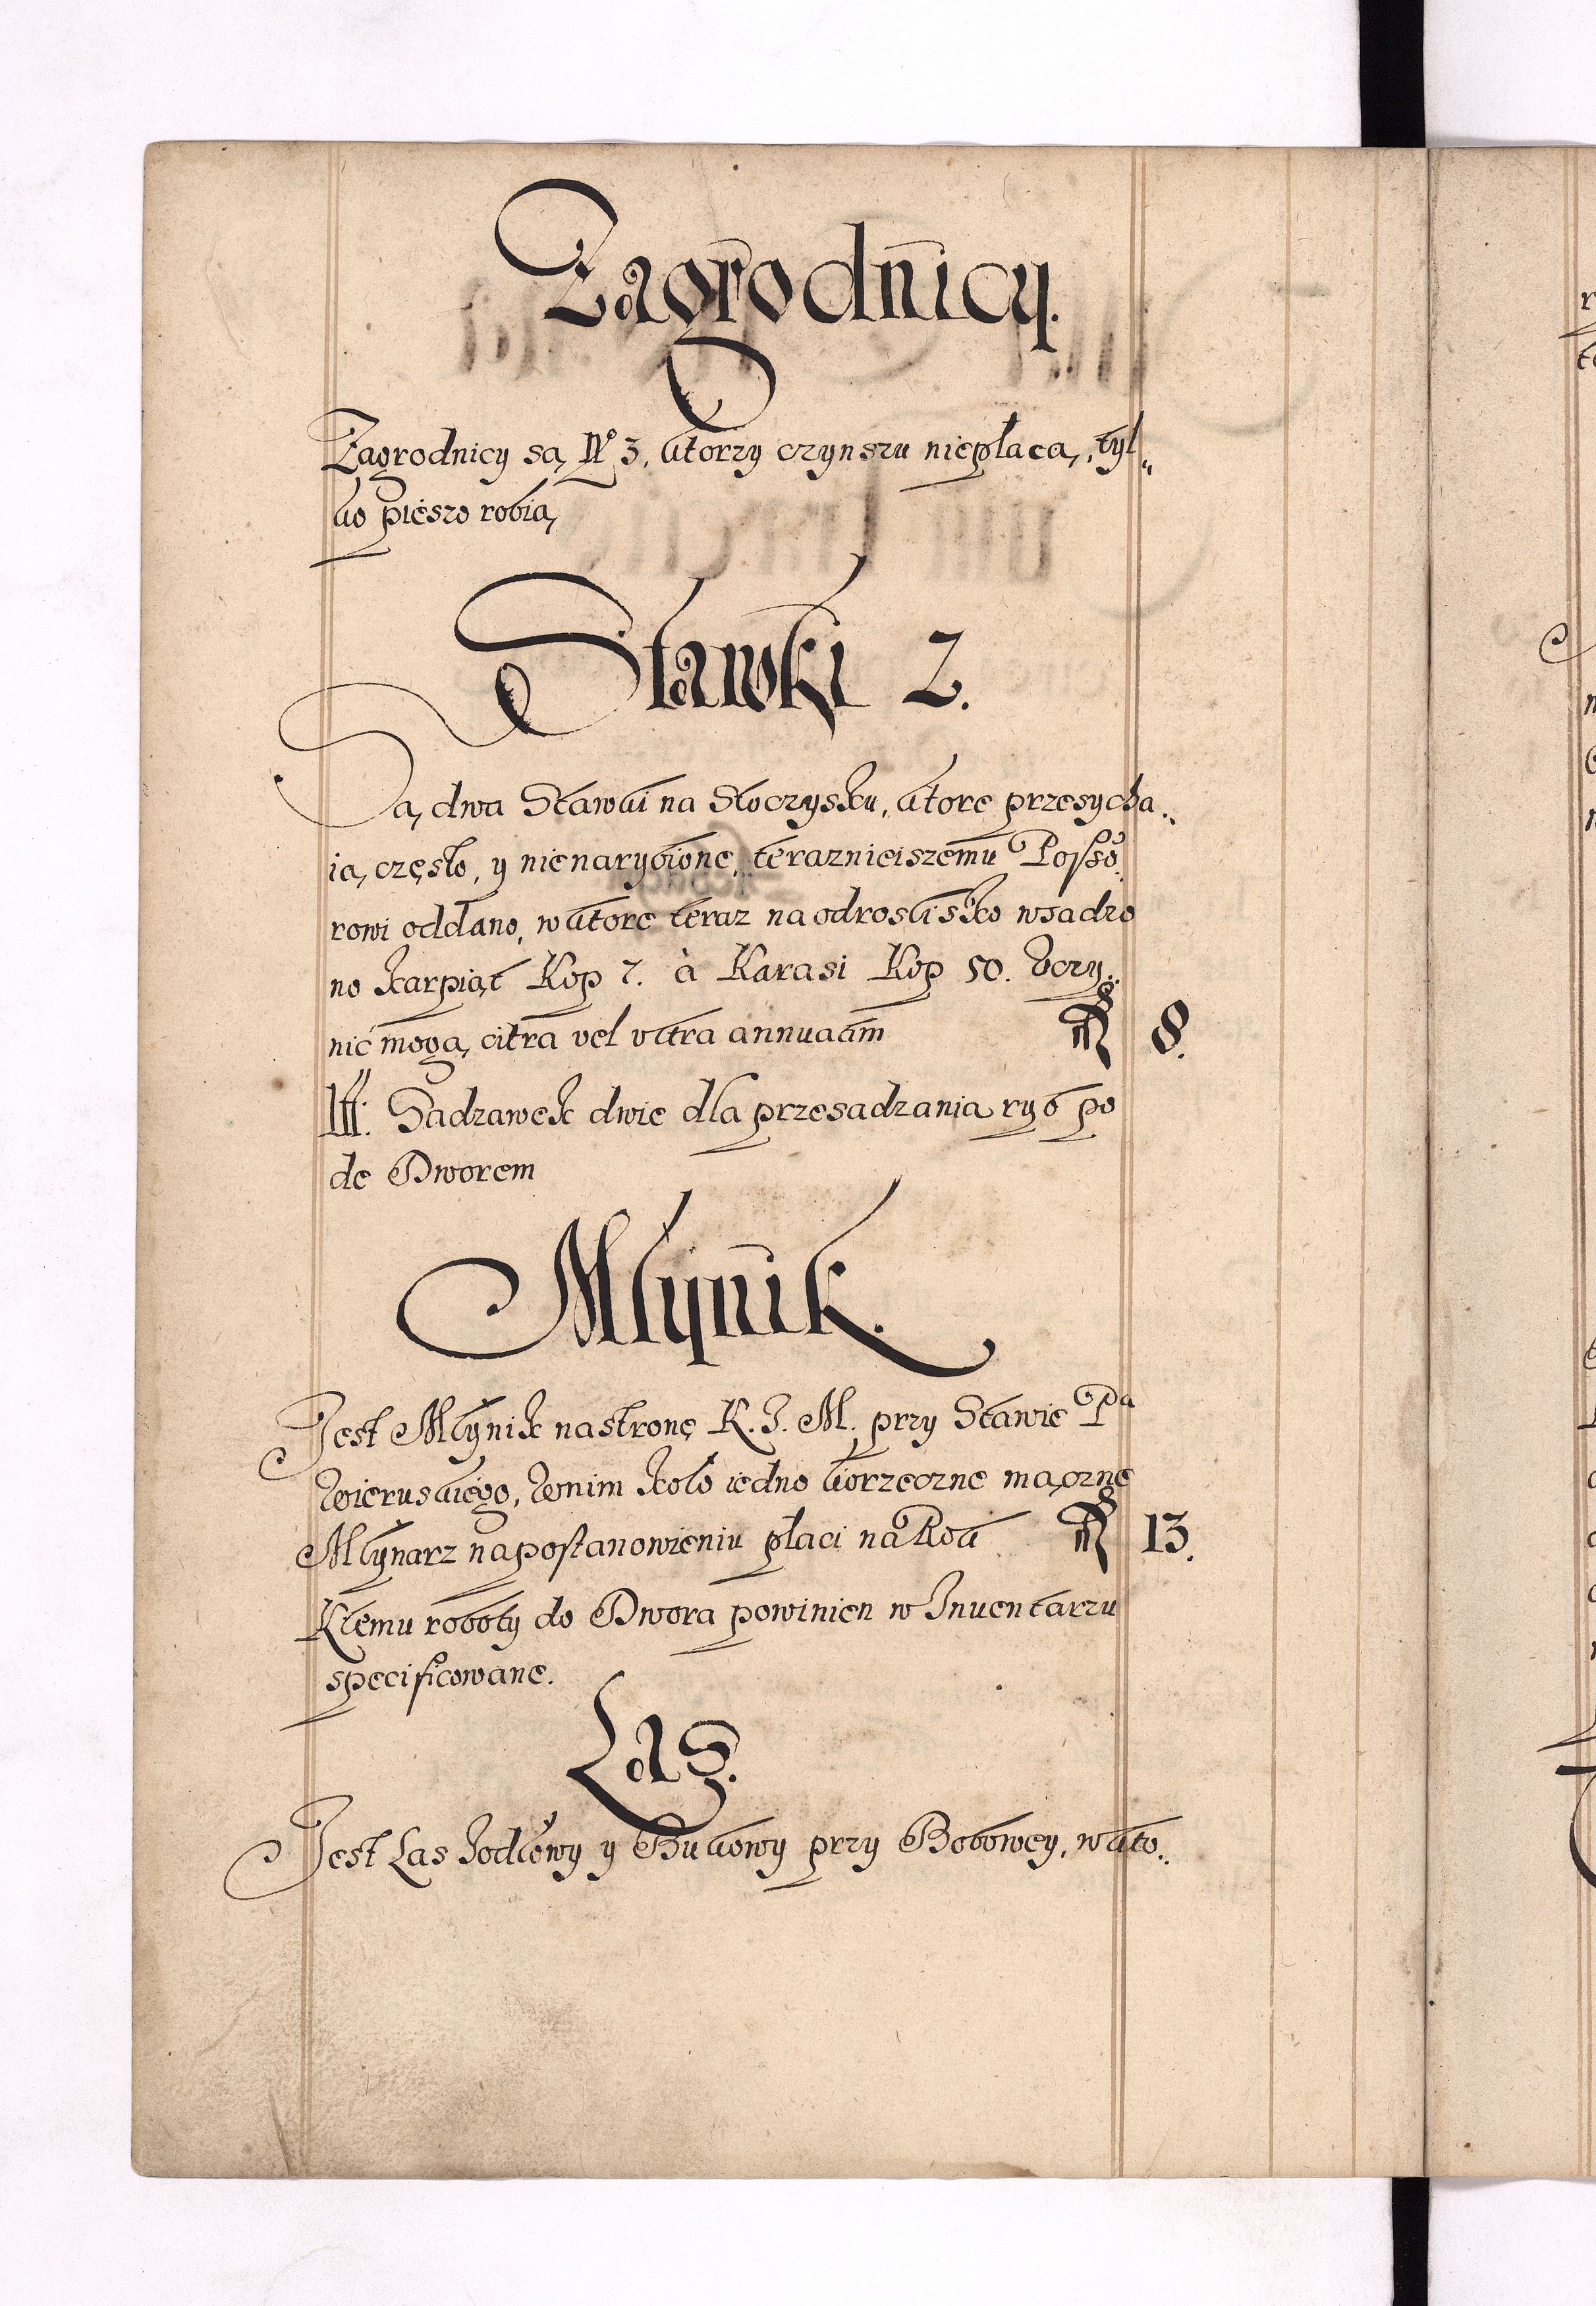 Zagrodnicy.
Zagrodnicy są Nº 3, ktorzy czynszu niepłacą, tyl„
ko pieszo robią,
Stawki 2.
Są, dwa Stawki na Stoczysku, ktore przesycha„
ią, często, y nienarybione, teraznieiszemu Posso„
rowi oddano, w ktore teraz na odrostisko wsadzo
no karpiąt Kop 7. à Karasi Kop 50. Vczy„
nić mogą, citra vel vltra annuatim fl 8.
Itt: Sadzawek dwie dla przesadzania ryb po
de Dworem
Młynik.
Jest Młynik na stronę K. J. M. przy Stawie Pª
Wieruskiego, w nim koło iedno korzeczne mączne
Młynarz na postanowieniu płaci na Rok fl 13.
Ktemu roboty do Dwora powinien w Inuentarzu
specificowane.
Las.
Jest Las Jodłowy y Bukowy przy Bobowey, w kto„